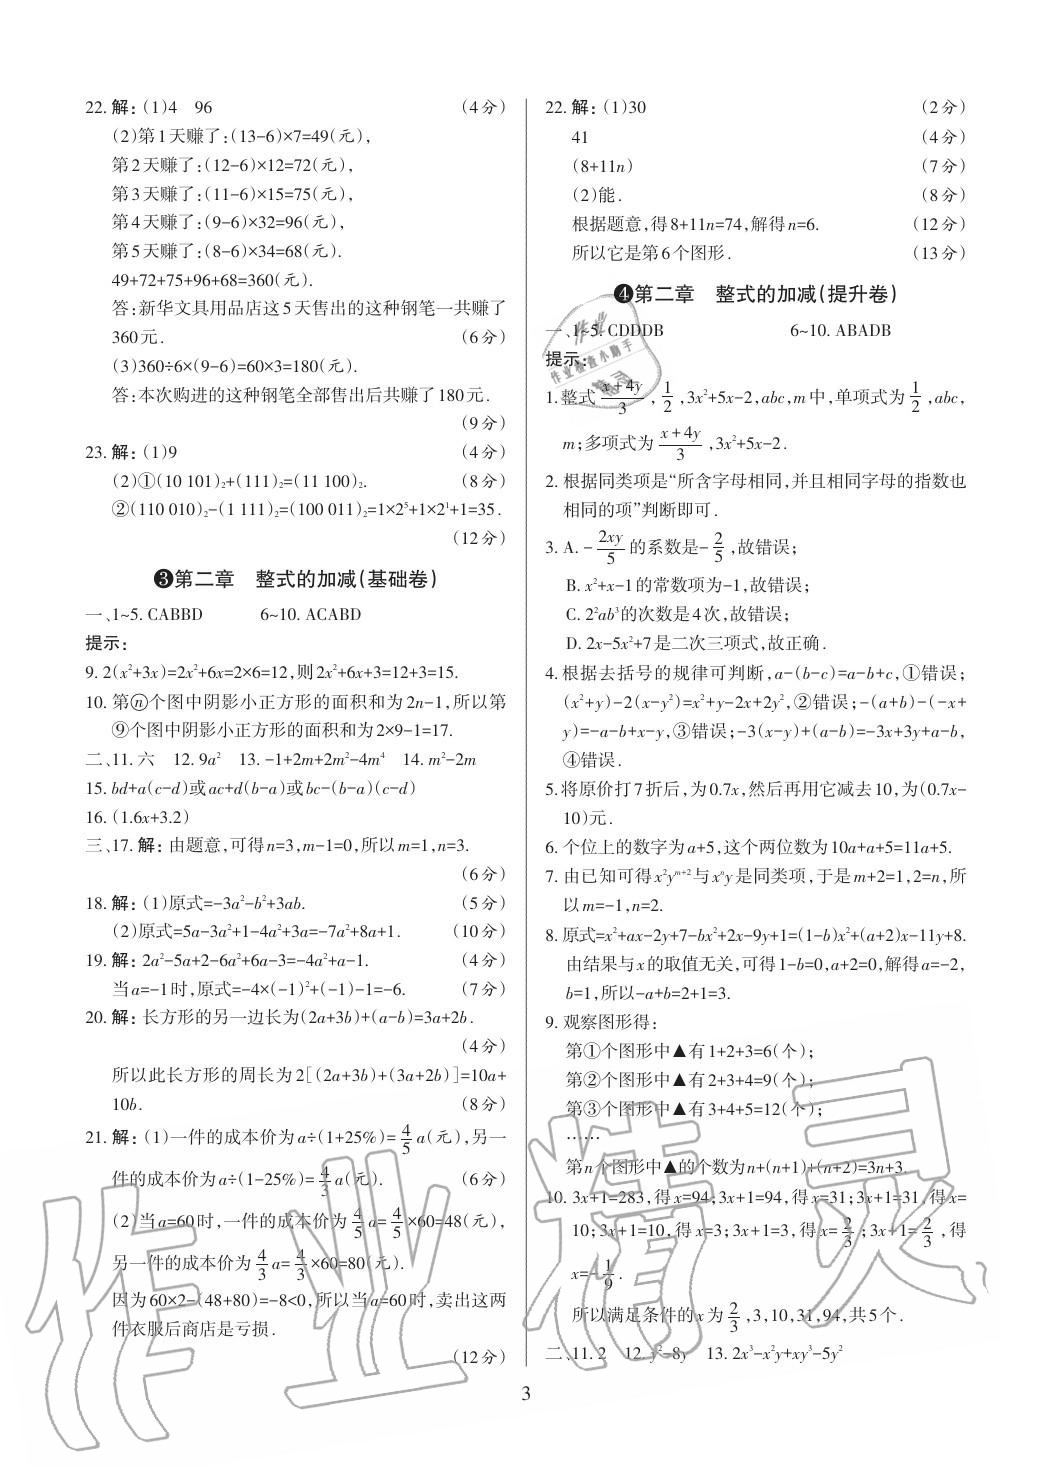 22. 解:(1)4　96　(4分)
(2)第1天赚了:(13-6)×7=49(元),
第2天赚了:(12-6)×12=72(元),
第3天赚了:(11-6)×15=75(元),
第4天赚了:(9-6)×32=96(元),
第5天赚了:(8-6)×34=68(元).
49+72+75+96+68=360(元).
答:新华文具用品店这5天售出的这种钢笔一共赚了
360元.　(6分)
(3)360÷6×(9-6)=60×3=180(元).
答:本次购进的这种钢笔全部售出后共赚了180元.
(9分)
23. 解:(1)9　(4分)
(2)①(10 101)₂+(111)₂=(11 100)₂.　(8分)
②(110 010)₂-(1 111)₂=(100 011)₂=1×2⁵+1×2¹+1=35.
(12分)
❸第二章　整式的加减(基础卷)
一、1~5. CABBD　6~10. ACABD
提示:
9. 2(x²+3x)=2x²+6x=2×6=12,则2x²+6x+3=12+3=15.
10. 第ⓝ个图中阴影小正方形的面积和为2n-1,所以第
⑨个图中阴影小正方形的面积和为2×9-1=17.
二、11. 六　12. 9a²　13. -1+2m+2m²-4m⁴　14. m²-2m
15. bd+a(c-d)或ac+d(b-a)或bc-(b-a)(c-d)
16. (1.6x+3.2)
三、17. 解: 由题意,可得n=3,m-1=0,所以m=1,n=3.
(6分)
18. 解:(1)原式=-3a²-b²+3ab.　(5分)
(2)原式=5a-3a²+1-4a²+3a=-7a²+8a+1.　(10分)
19. 解: 2a²-5a+2-6a²+6a-3=-4a²+a-1.　(4分)
当a=-1时,原式=-4×(-1)²+(-1)-1=-6.　(7分)
20. 解: 长方形的另一边长为(2a+3b)+(a-b)=3a+2b.
(4分)
所以此长方形的周长为2[(2a+3b)+(3a+2b)]=10a+
10b.　(8分)
21. 解:(1)一件的成本价为a÷(1+25%)=4/5 a(元),另一
件的成本价为a÷(1-25%)=4/3 a(元).　(6分)
(2)当a=60时,一件的成本价为4/5 a=4/5×60=48(元),
另一件的成本价为4/3 a=4/3×60=80(元).
因为60×2-(48+80)=-8<0,所以当a=60时,卖出这两
件衣服后商店是亏损.
(12分)
22. 解:(1)30　(2分)
41　(4分)
(8+11n)　(7分)
(2)能.　(8分)
根据题意,得8+11n=74,解得n=6.　(12分)
所以它是第6个图形.　(13分)
❹第二章　整式的加减(提升卷)
一、1~5. CDDDB　6~10. ABADB
提示:
1. 整式(x+4y)/3,1/2,3x²+5x-2,abc,m中,单项式为1/2,abc,
m;多项式为(x+4y)/3,3x²+5x-2.
2. 根据同类项是“所含字母相同,并且相同字母的指数也
相同的项”判断即可.
3. A. -2xy/5的系数是-2/5,故错误;
B. x²+x-1的常数项为-1,故错误;
C. 2²ab³的次数是4次,故错误;
D. 2x-5x²+7是二次三项式,故正确.
4. 根据去括号的规律可判断,a-(b-c)=a-b+c,①错误;
(x²+y)-2(x-y²)=x²+y-2x+2y²,②错误;-(a+b)-(-x+
y)=-a-b+x-y,③错误;-3(x-y)+(a-b)=-3x+3y+a-b,
④错误.
5. 将原价打7折后,为0.7x,然后再用它减去10,为(0.7x-
10)元.
6. 个位上的数字为a+5,这个两位数为10a+a+5=11a+5.
7. 由已知可得x²yᵐ⁺²与xⁿy是同类项,于是m+2=1,2=n,所
以m=-1,n=2.
8. 原式=x²+ax-2y+7-bx²+2x-9y+1=(1-b)x²+(a+2)x-11y+8.
由结果与x的取值无关,可得1-b=0,a+2=0,解得a=-2,
b=1,所以-a+b=2+1=3.
9. 观察图形得:
第①个图形中▲有1+2+3=6(个);
第②个图形中▲有2+3+4=9(个);
第③个图形中▲有3+4+5=12(个);
……
第n个图形中▲的个数为n+(n+1)+(n+2)=3n+3.
10. 3x+1=283,得x=94;3x+1=94,得x=31;3x+1=31,得x=
10;3x+1=10,得x=3;3x+1=3,得x=2/3;3x+1=2/3,得
x=-1/9.
所以满足条件的x为2/3,3,10,31,94,共5个.
二、11. 2　12. y²-8y　13. 2x³-x²y+xy³-5y²
3
作业
作业检查小助手
精灵
作业精灵